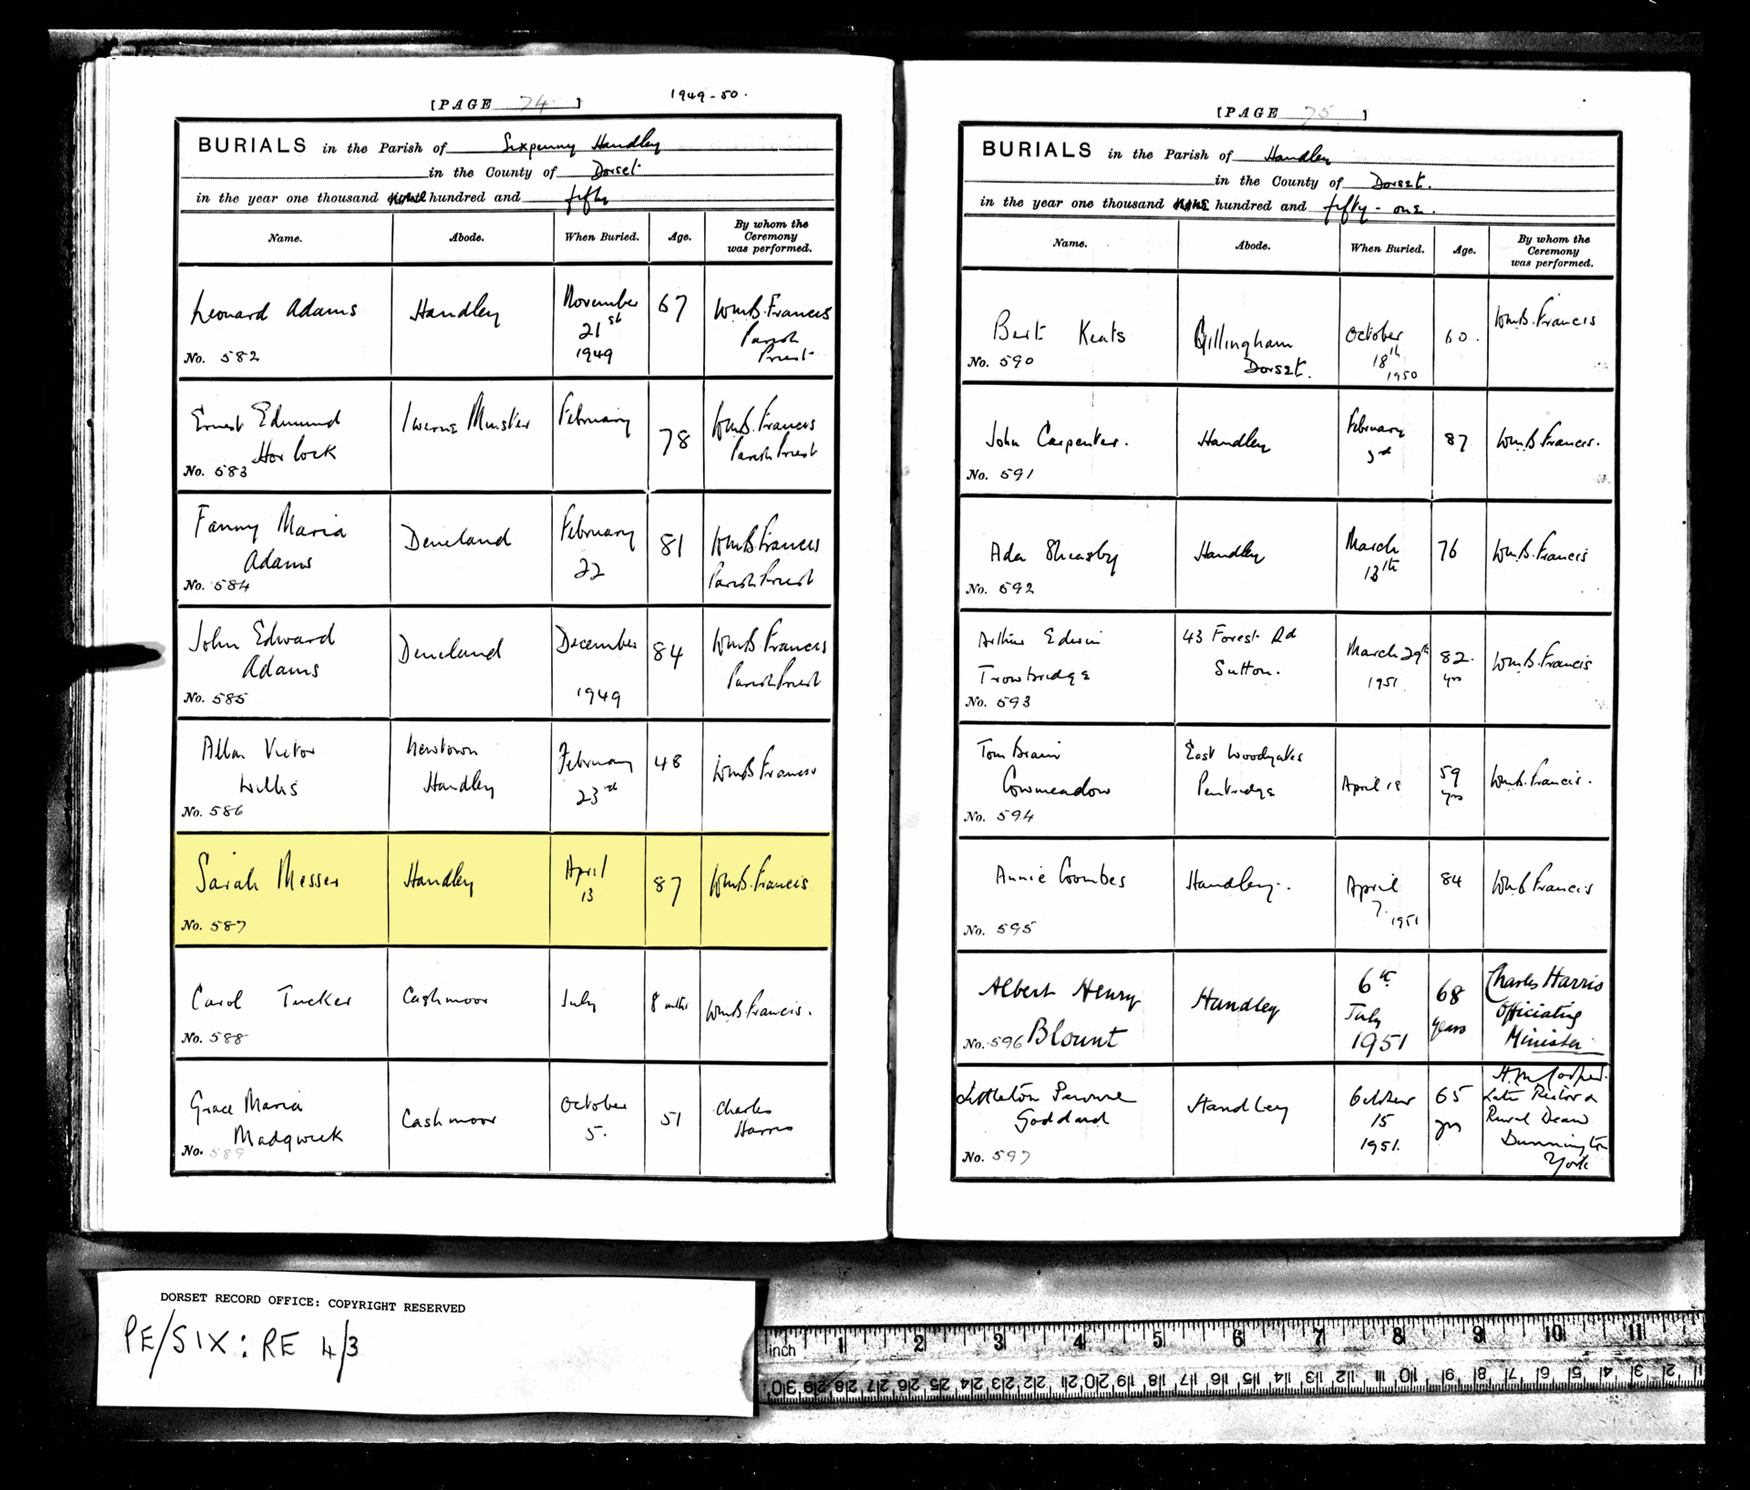 [PAGE 74 ]
1949-50.
BURIALS in the Parish of Sixpenny Handley
in the County of Dorset
in the year one thousand nine hundred and fifty
Name. Abode. When Buried. Age. By whom the Ceremony was performed.
Leonard Adams Handley November 21st 1949 67 Wm B. Francis Parish Priest
No. 582
Ernest Edmund Horlock Iwerne Minster February 78 Wm B. Francis Parish Priest
No. 583
Fanny Maria Adams Deneland February 22 81 Wm B Francis Parish Priest
No. 584
John Edward Adams Deneland December 1949 84 Wm B. Francis Parish Priest
No. 585
Allan Victor Willis Newtown Handley February 23rd 48 Wm B Francis
No. 586
Sarah Messer Handley April 13 87 Wm B. Francis
No. 587
Carol Tucker Cashmoor July 8 mths Wm B. Francis.
No. 588
Grace Maria Madgwick Cashmoor October 5. 51 Charles Harris
No. 589
[PAGE 75 ]
BURIALS in the Parish of Handley
in the County of Dorset.
in the year one thousand nine hundred and fifty-one.
Name. Abode. When Buried. Age. By whom the Ceremony was performed.
Bert Keats Gillingham Dorset. October 18th 1950 60. Wm B. Francis
No. 590
John Carpenter. Handley February 3rd 87 Wm B Francis.
No. 591
Ada Sheasby Handley March 13th 76 Wm B. Francis
No. 592
Arthur Edwin Trowbridge 43 Forest Rd Sutton. March 29th 1951 82. yrs Wm B. Francis
No. 593
Tom Cowmeadow East Woodyates Pentridge April 18 59 yrs Wm B. Francis.
No. 594
Annie Coombes Handley.. April 7. 1951 84 Wm B Francis
No. 595
Albert Henry Blount Handley 6th July 1951 68 years Charles Harris Officiating Minister
No. 596
Littleton Goddard Handley October 15 1951. 65 yrs Late Rector & Rural Dean Dunnington York
No. 597
DORSET RECORD OFFICE: COPYRIGHT RESERVED
PE/SIX: RE 4/3
inch 1 2 3 4 5 6 7 8 9 10 11
30 29 28 27 26 25 24 23 22 21 20 19 18 17 16 15 14 13 12 11 10 9 8 7 6 5 4 3 2 1